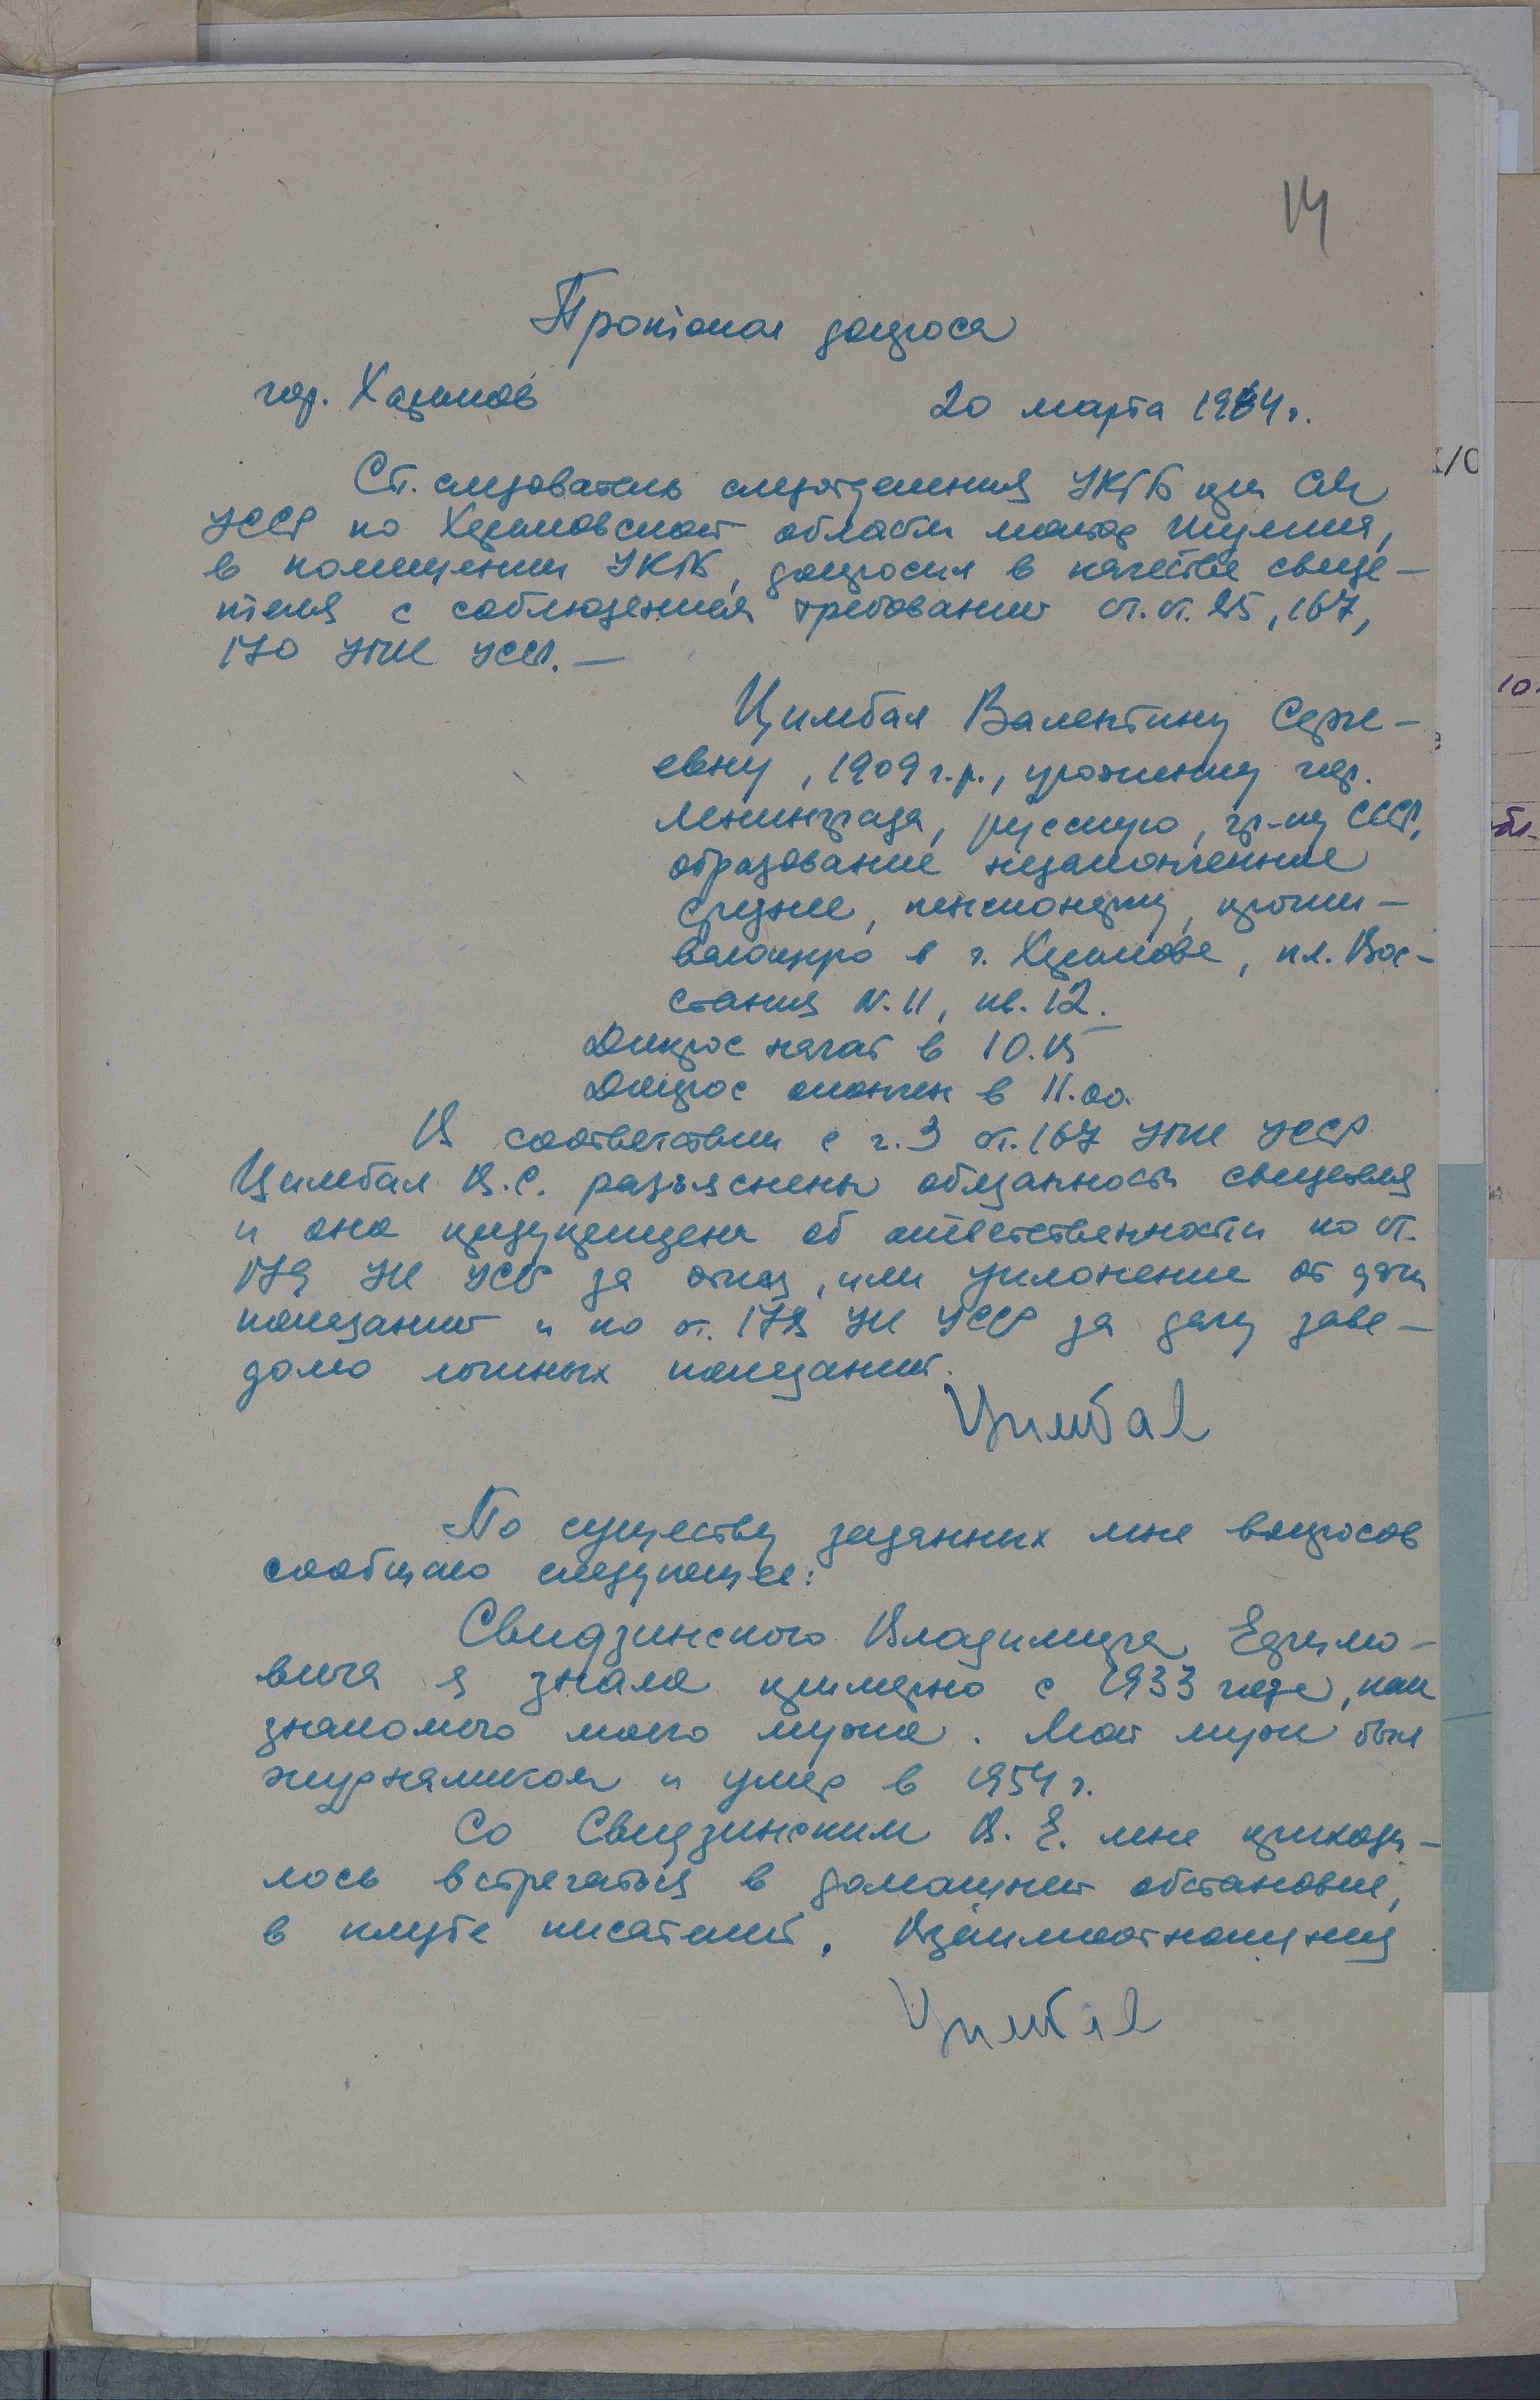 14
Протокол допроса
гор. Харьков
20 марта 1964 г.
Ст. следователь следотделения УКГБ при СМ
УССР по Харьковской области майор Шулика,
в помещении УКГБ, допросил в качестве свиде-
теля с соблюдением требований ст.ст. 85, 167,
170 УПК УССР. —
Цимбал Валентину Серге-
евну, 1909 г.р., уроженку гор.
Ленинграда, русскую, гр-ку СССР,
образование незаконченное
среднее, пенсионерку, прожи-
вающую в г. Харькове, пл. Вос-
стания N. 11, кв. 12.
Допрос начат в 10.15
Допрос окончен в 11.00.
В соответствии с ч. 3 ст. 167 УПК УССР
Цимбал В.С. разъяснены обязанности свидетеля
и она предупреждена об ответственности по ст.
179 УК УССР за отказ, или уклонение от дачи
показаний и по ст. 178 УК УССР за дачу заве-
домо ложных показаний.
Цимбал
По существу заданных мне вопросов
сообщаю следующее:
Свидзинского Владимира Ефимо-
вича я знала примерно с 1933 года, как
знакомого моего мужа. Мой муж был
журналистом и умер в 1954 г.
Со Свидзинским В. Е. мне приходи-
лось встречаться в домашней обстановке,
в клубе писателей. Взаимоотношения
Цимбал
К/О
10.